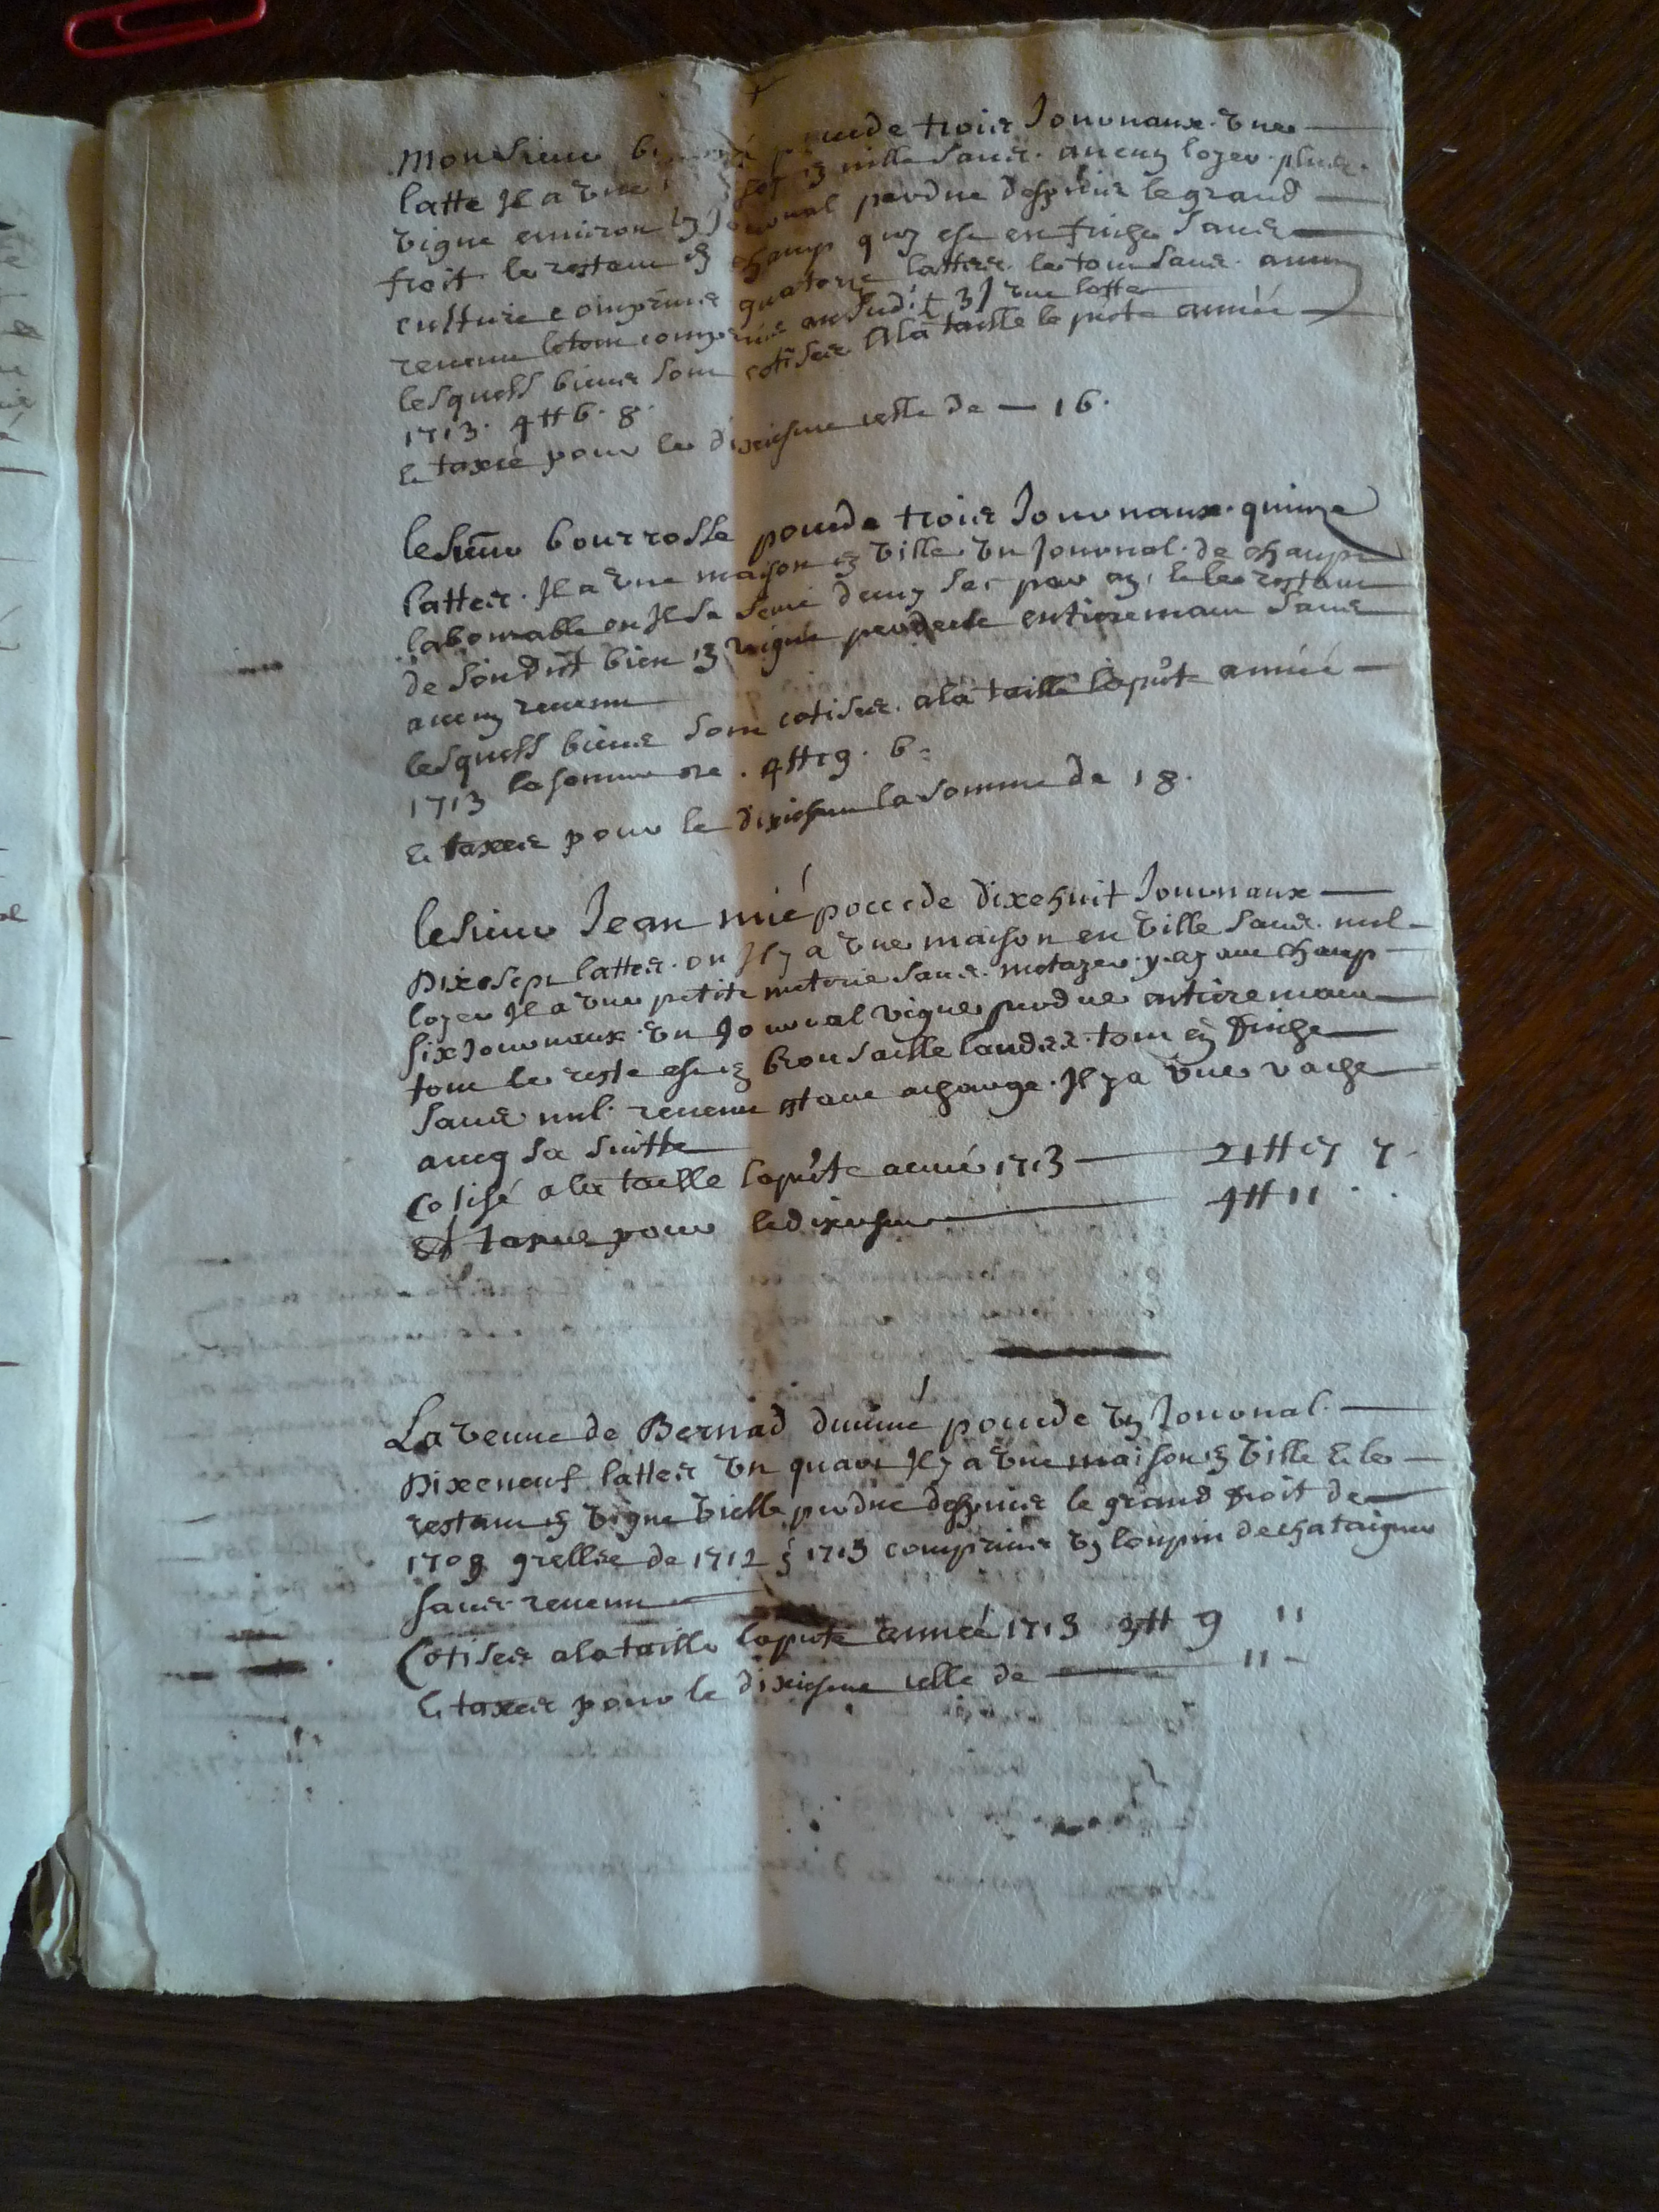 Monsieur pocede trois Journaux une
latte Il a une en ville sans aucun loyer plus
vigne environ un Journal perdue despuis le grand
froit le restant en champ quy est en friche sans
culture comprins quatorze lattes le tout sans aucun
revenu le tout comprins audit 3 J une latte
lesquels biens sont cotisés a la taille la pnte année
1713. 4 ₶ 6. 8.
et taxé pour le dixiesme celle de — 16.
le sieur bourrosse pocede trois Journaux quinze
lattes. Il a une maison en ville un Journal de champ
labourable ou Il se semé deux sac par an, et le restant
de sondit bien en vigne perdeue entieremant sans
aucun revenu
lesquels biens sont cotisés a la taille la pnte année
1713 la somme de . 4 ₶ 19. 6
et taxés pour le dixiesme la somme de 18.
le sieur Jean mié pocede dixehuit Journaux
Dixesept lattes ou Il y a une maison en ville sans nul
loyer Il a une petite meterie sans metayer y ayant champ
six Journaux un Journal vigne perdue entieremant
tout le reste est en brousaille landes tout en friche
sans nul revenu estant a charge. Il y a une vache
avec sa suitte
Cotisé a la taille la pnte année 1713 — 21 ₶ 17 7
Et taxés pour le dixiesme — 4 ₶ 11
La veuve de Bernad pocede un Journal
Dixeneuf lattes un quart Il y a une maison en ville et le
restant en vigne vielle perdue despuis le grand froit de
1709 grellée de 1712 & 1713 comprins un loupin de chataignes
sans revenu
Cotisés a la taille la pnte année 1713 3 ₶ 9 "
et taxés pour le dixiesme celle de — "